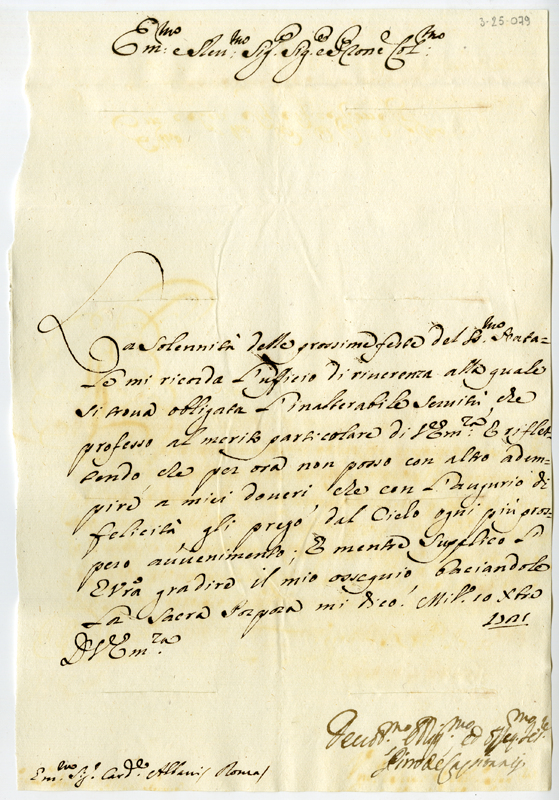 3-25-079
Em:mo e Rev:mo Sig.r Sig.r e Prone Col:mo
La Solennità delle prossime feste del S.mo Nata=
le mi ricorda l'ufficio di riverenza alla quale
si trova obligata l'inalterabile servitù, che
professo al merito particolare di V. Em.za, E riflet=
tendo che per ora non posso con altro adem=
pire, a miei doveri che con l'augurio di
felicità gli prego dal Cielo ogni più pros=
pero avvenimento; E mentre supplico l'
E Vra gradire il mio ossequio baciandole
La Sacra Porpora mi dico. Mil.o 10 Xbre
D V. Em.za
Em:mo Sig.r Card.le Albani Roma